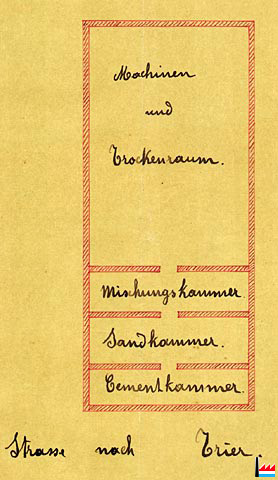 Machinen
und
Trockenraum.
Mischungskammer
Sandkammer.
Cementkammer.
Strasse nach Trier.